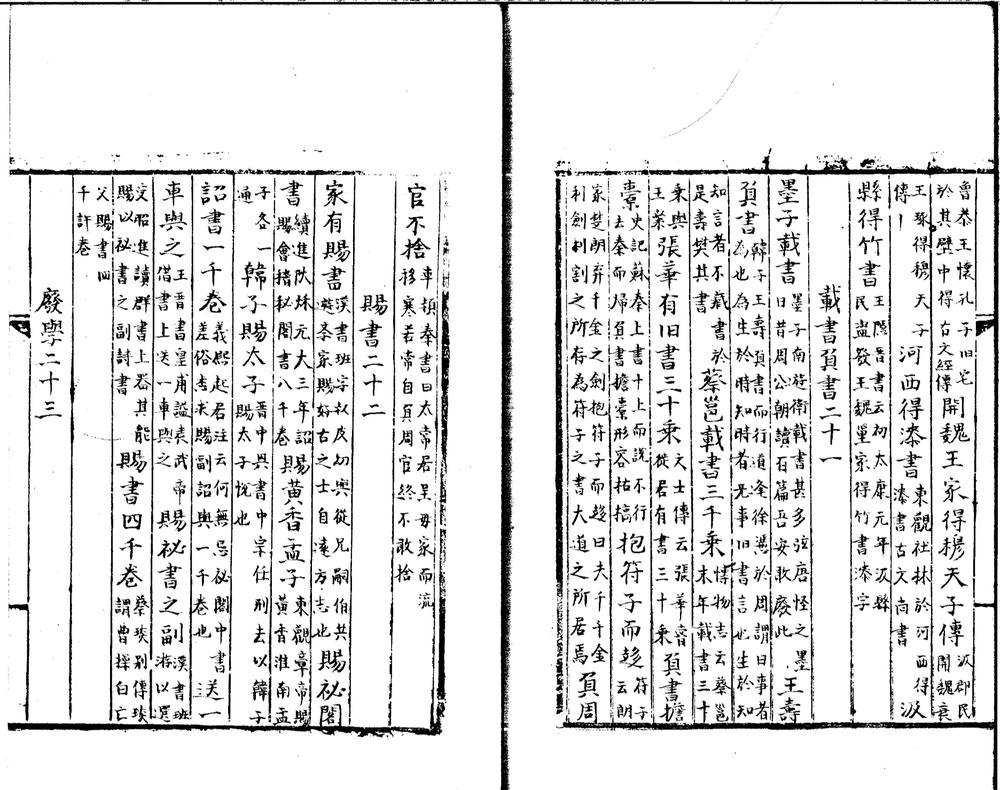 魯恭王懷孔子旧宅於其壁中得古文經傳開魏王冢得穆天子傳汲郡民開魏襄
王冢得穆天子傳丨河西得漆書東觀杜林於河西得漆書古文尚書汲
縣得竹書王隱晋書云初太康元年汲縣民盗發王魏里冢得竹書漆字
載書負書二十一
墨子載書墨子南遊衛載書甚多弦唐怪之墨曰昔周公朝讀百篇吾安敢廢此王壽
負書韓子王壽負書而行逢徐馮於周謂曰事者為也為生於時知時者无事旧書言也生於知
知言者不藏書於是壽焚其書蔡邕載書三千乘博物志云蔡邕末年載書三十
乘與王粲張華有旧書三十乘文士傳云張華嘗徙居有書三十乘負書擔
橐史記蘇秦上書十上而説不行去秦而歸負書擔橐形容枯搞抱符子而趍符子云朗
家楚朗弃千金之劍抱符子而趍曰夫千千金利劍利割之所存為符子之書大道之所居焉負周
官不捨車頻秦書曰太常君呈毋家而流移寒若常自負周官終不敢捨
賜書二十二
家有賜書漢書班字以皮幼與從兄嗣伯共遊家賜好古之士自遠方志也賜祕閣
書續進元大三年詔賜會稽秘閣書八千卷賜黄香孟子東觀章帝賜黄香淮南孟
子各一通韓子賜太子晋中興書中宗任刑去以韓子賜太子悅也
詔書一千卷義熙起居注云何無忌祕閣中書差俗志求賜副詔與一千卷也送一
車與之王晋書皇甫謐表武帝借書上送一車與之賜祕書之副漢書班游以選
文昭進讀群書上器其能賜以祕書之副詩書賜書四千卷蔡琰别傳琰謂曹操曰亡
父賜書四千許卷
廢學二十三